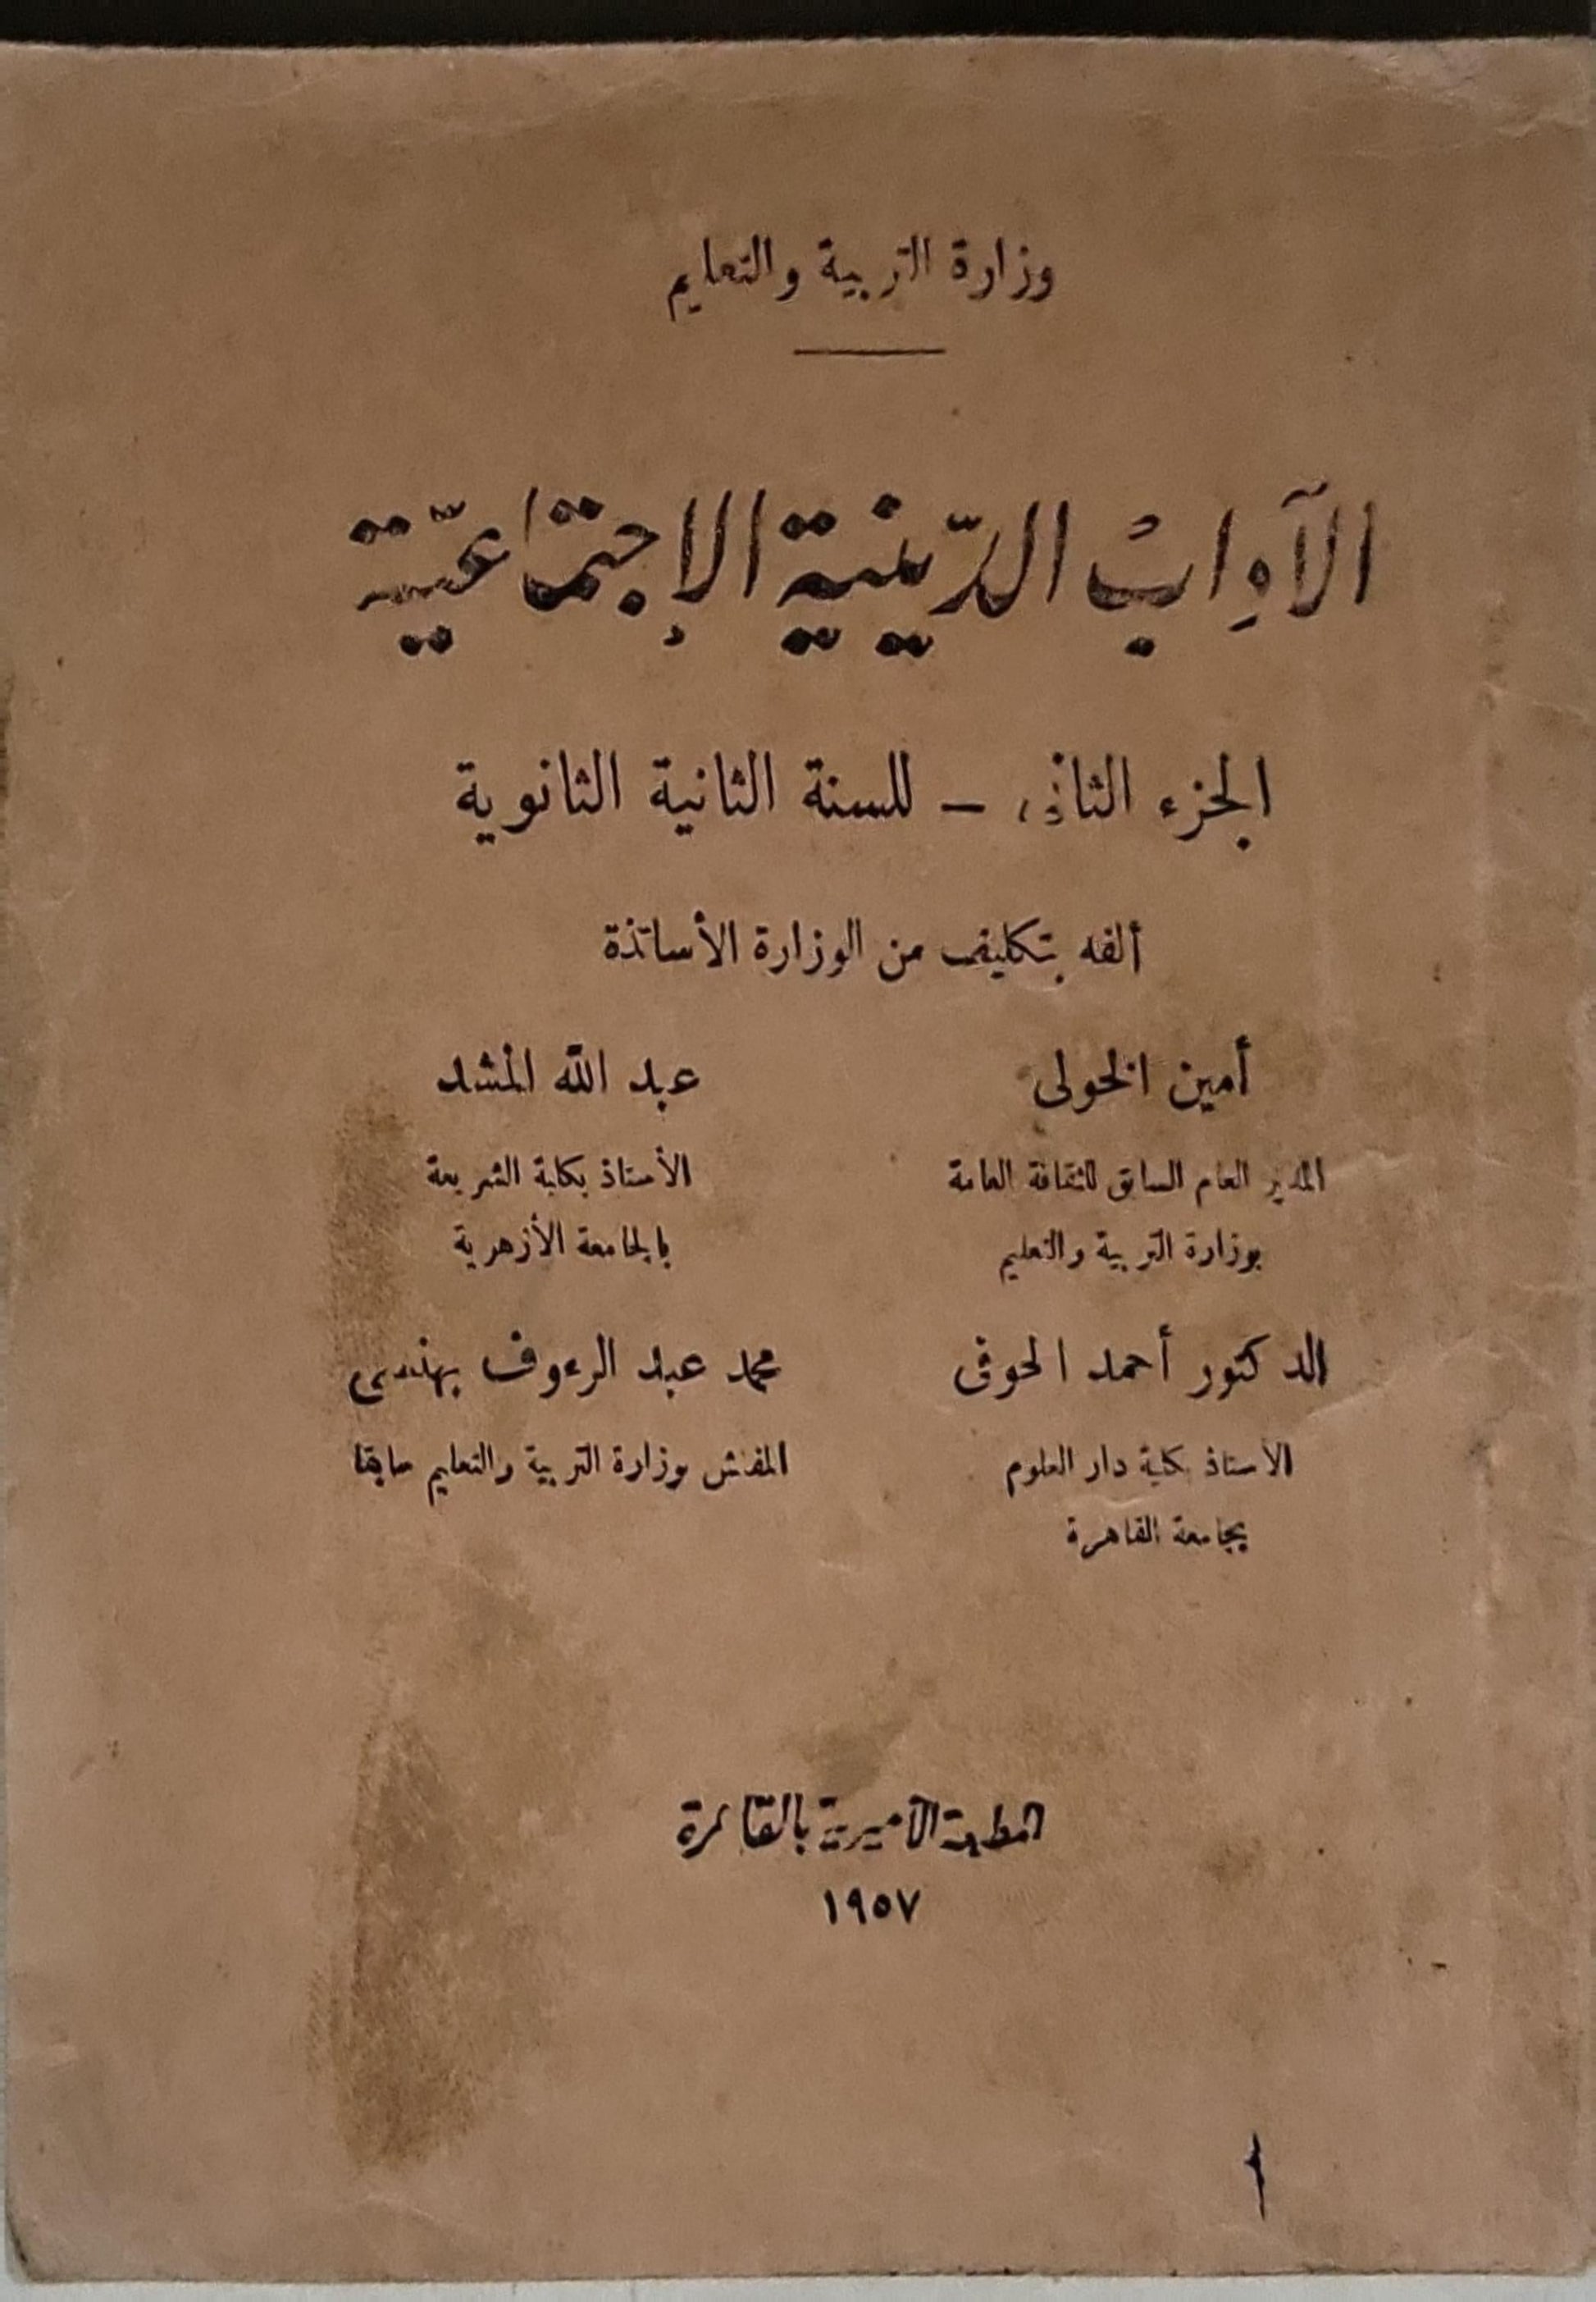 وزارة التربية والتعليم
الآداب الدينية الإجتماعية
الجزء الثاني — للسنة الثانية الثانوية
ألفه بتكليف من الوزارة الأساتذة
أمين الخولى
المدير العام السابق للثقافة العامة
بوزارة التربية والتعليم
عبد الله المشد
الأستاذ بكلية الشريعة
بالجامعة الأزهرية
الدكتور أحمد الحوفى
الأستاذ بكلية دار العلوم
بجامعة القاهرة
محمد عبد الرءوف بهنسى
المفتش بوزارة التربية والتعليم سابقا
المطبعة الأميرية بالقاهرة
١٩٥٧